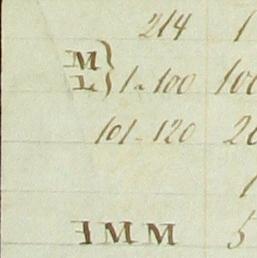 214 1
M
L } 1-100 100
101-120 20
1
IMM 5